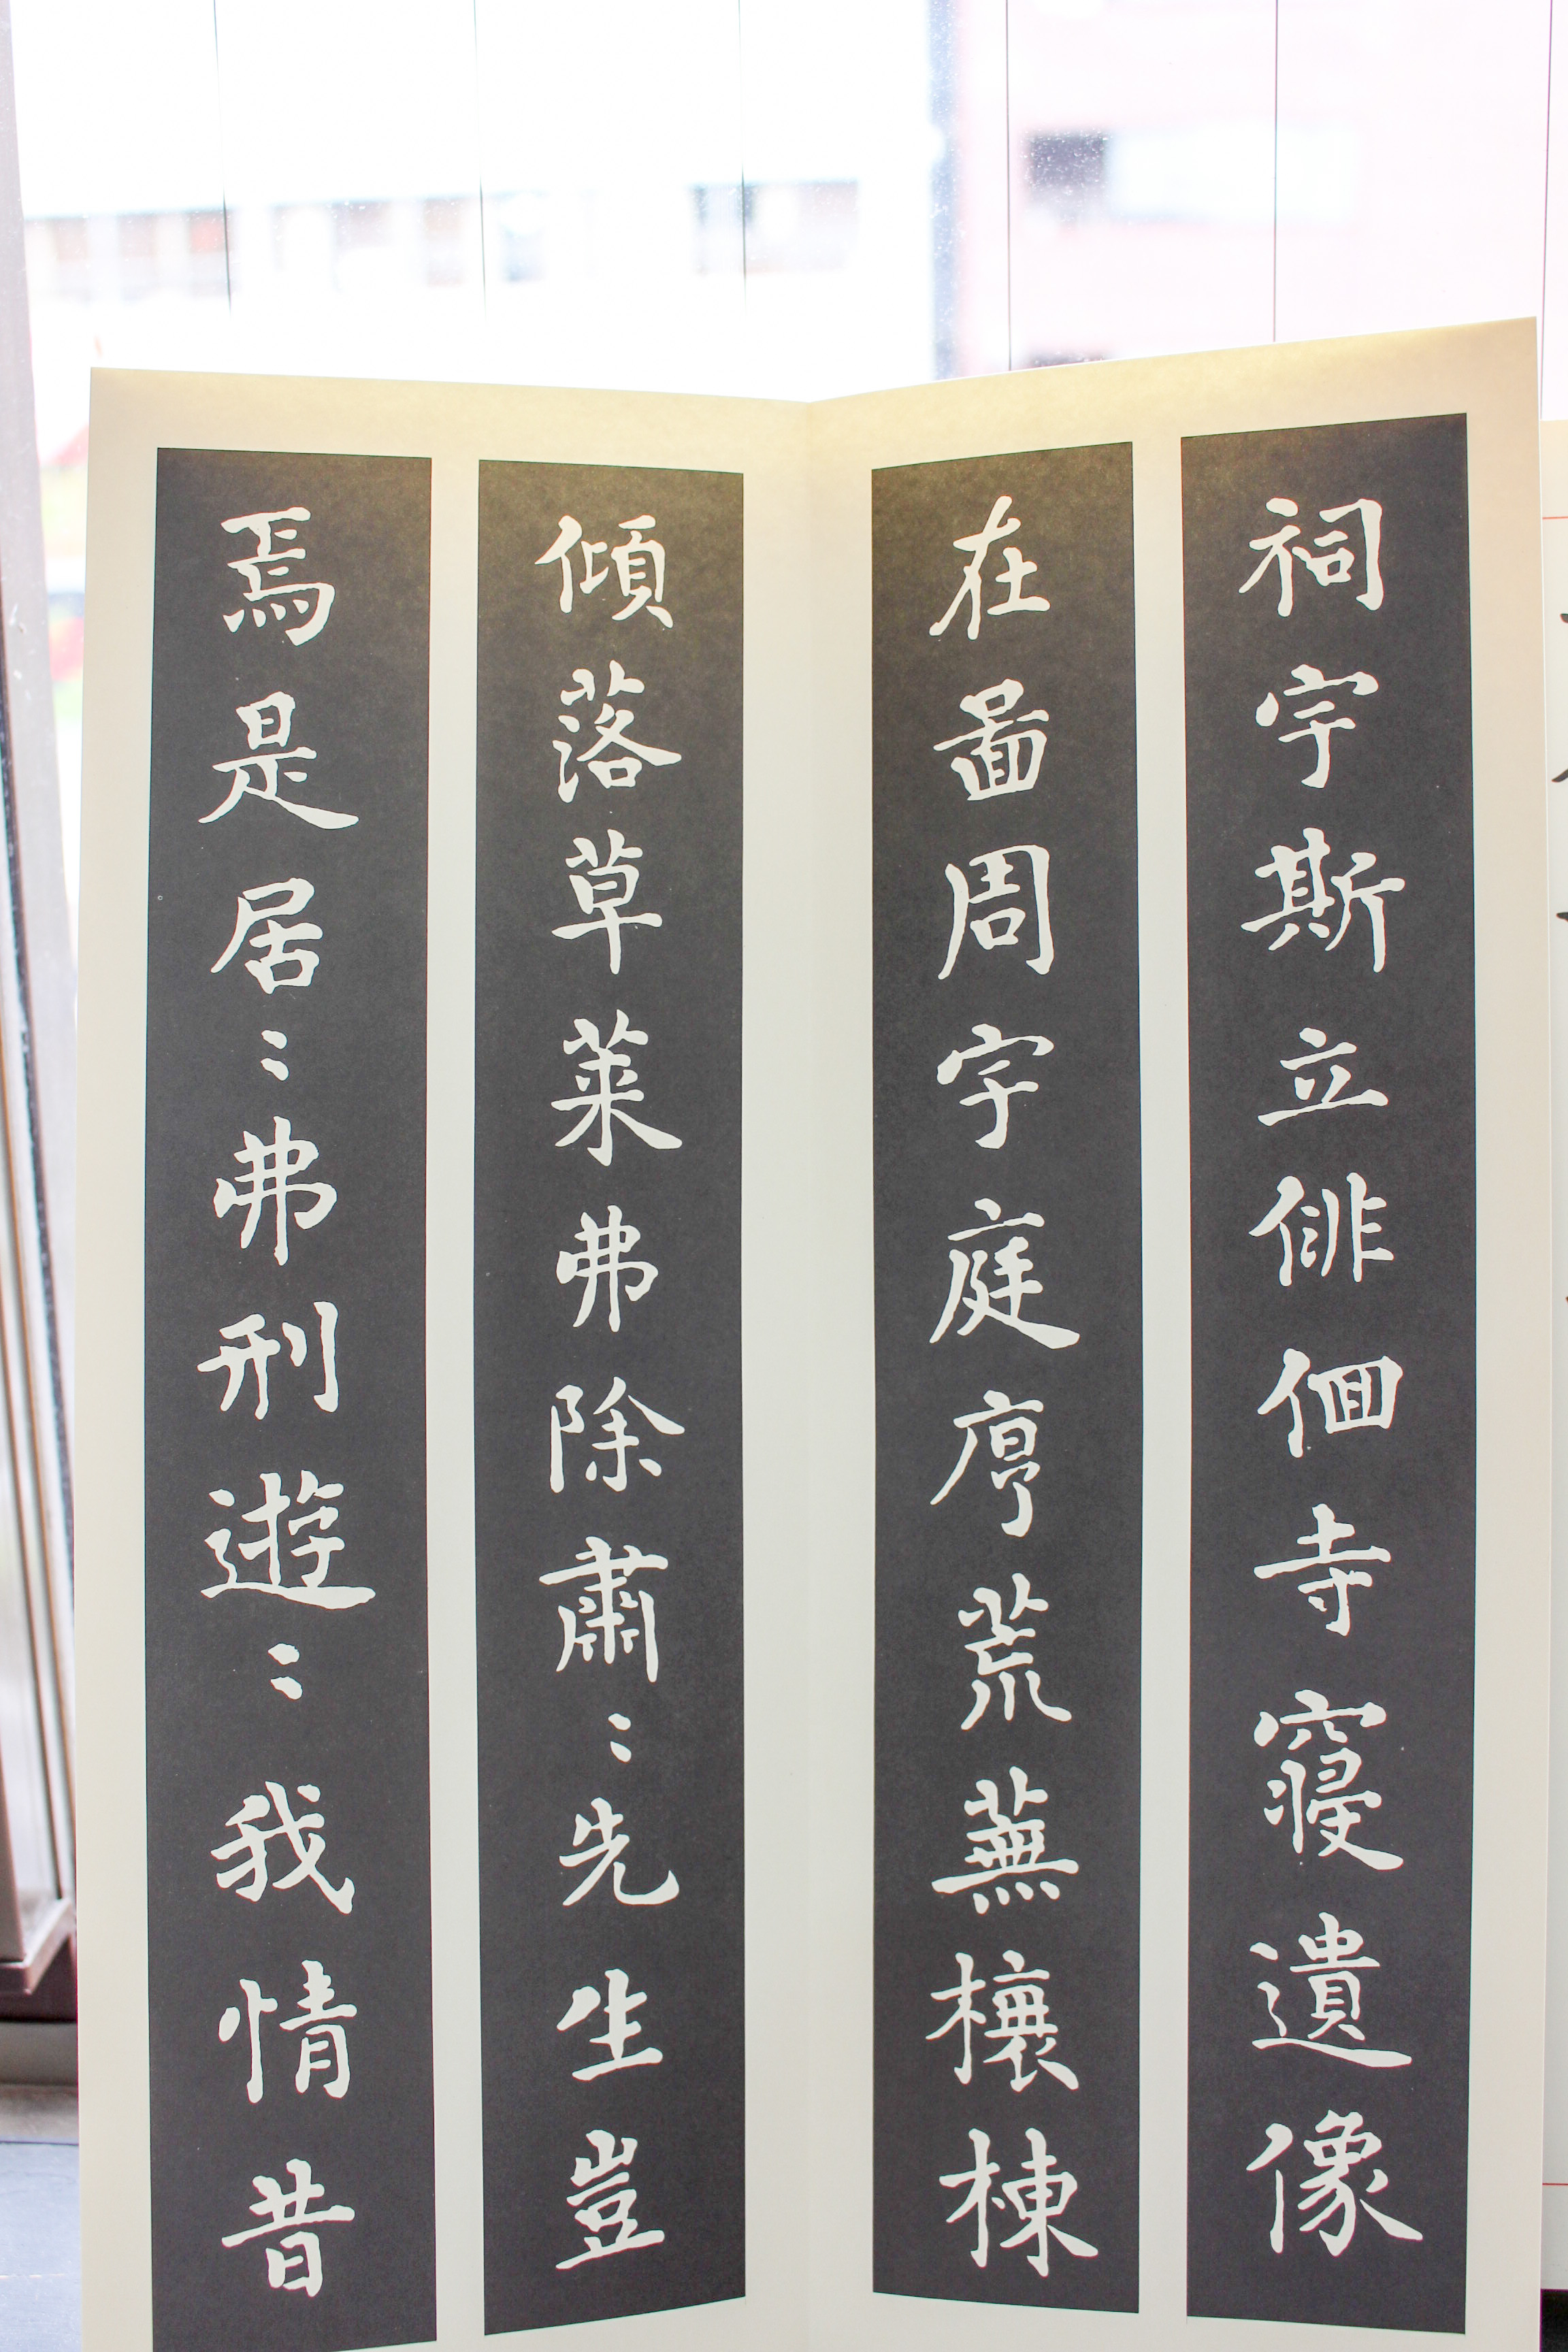 祠宇斯立俳佪寺寢遺像
在啚周宇庭序荒蕪榱棟
傾落草萊弗除肅〻先生豈
焉是居〻弗刑遊〻我情昔